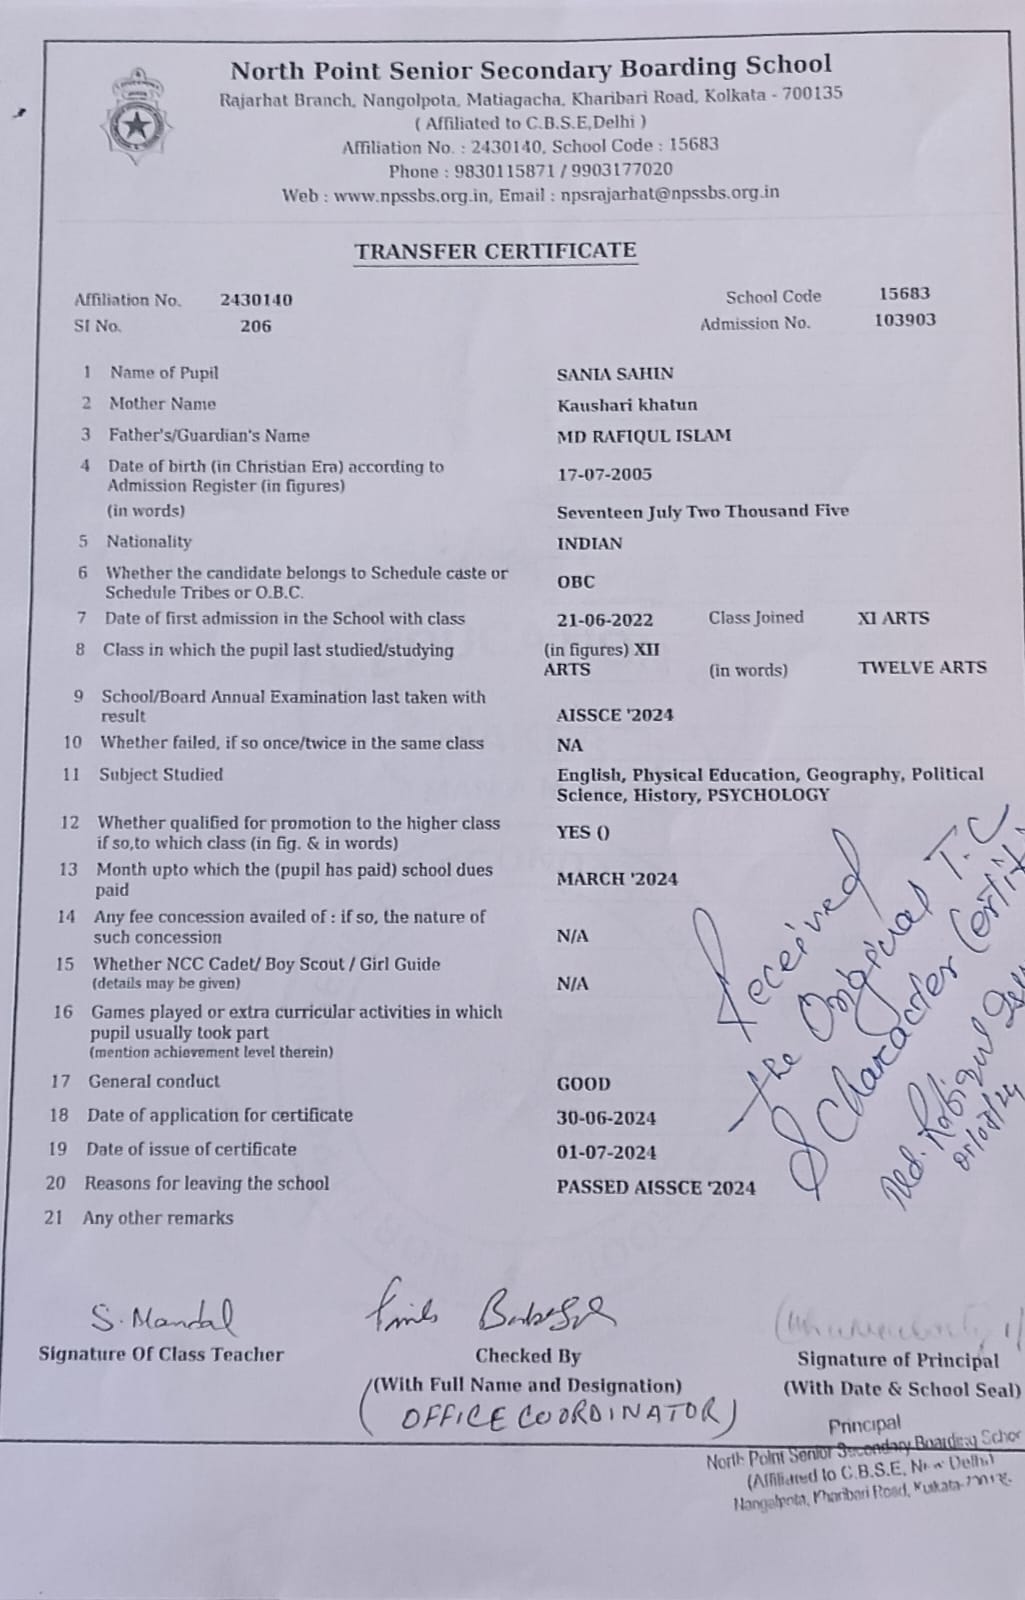 North Point Senior Secondary Boarding School
Rajarhat Branch, Nangolpota, Matiagacha, Kharibari Road, Kolkata - 700135
( Affiliated to C.B.S.E,Delhi )
Affiliation No. : 2430140, School Code : 15683
Phone : 9830115871 / 9903177020
Web : www.npssbs.org.in, Email : npsrajarhat@npssbs.org.in
TRANSFER CERTIFICATE
Affiliation No. 2430140 School Code 15683
SI No. 206 Admission No. 103903
1 Name of Pupil SANIA SAHIN
2 Mother Name Kaushari khatun
3 Father's/Guardian's Name MD RAFIQUL ISLAM
4 Date of birth (in Christian Era) according to
Admission Register (in figures) 17-07-2005
(in words) Seventeen July Two Thousand Five
5 Nationality INDIAN
6 Whether the candidate belongs to Schedule caste or
Schedule Tribes or O.B.C. OBC
7 Date of first admission in the School with class 21-06-2022 Class Joined XI ARTS
8 Class in which the pupil last studied/studying (in figures) XII
ARTS (in words) TWELVE ARTS
9 School/Board Annual Examination last taken with
result AISSCE '2024
10 Whether failed, if so once/twice in the same class NA
11 Subject Studied English, Physical Education, Geography, Political
Science, History, PSYCHOLOGY
12 Whether qualified for promotion to the higher class
if so,to which class (in fig. & in words) YES ()
13 Month upto which the (pupil has paid) school dues
paid MARCH '2024
14 Any fee concession availed of : if so, the nature of
such concession N/A
15 Whether NCC Cadet/ Boy Scout / Girl Guide
(details may be given) N/A
16 Games played or extra curricular activities in which
pupil usually took part
(mention achievement level therein)
17 General conduct GOOD
18 Date of application for certificate 30-06-2024
19 Date of issue of certificate 01-07-2024
20 Reasons for leaving the school PASSED AISSCE '2024
21 Any other remarks
Received
the Original T.C
& Character
Md. Rafiqul
S. Mandal
Signature Of Class Teacher
Checked By
(With Full Name and Designation)
(OFFICE COORDINATOR)
Signature of Principal
(With Date & School Seal)
Principal
North Point Senior Secondary Boarding
(Affiliated to C.B.S.E, New Delhi)
Nangalpota, Kharibari Road,